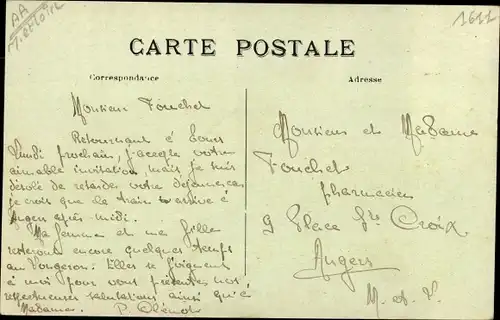 AA
M-et-Loire
1611
CARTE POSTALE
Correspondance
Adresse
Monsieur Fouchet
Retournant à Tours
lundi prochain, j'accepte votre
aimable invitation mais je suis
désolé de retarder votre déjeuner car
je crois que le train arrive à
Angers après-midi.
Ma femme et ma fille
resteront encore quelques temps
au Elles se joignent
à moi pour vous présenter nos
respectueuses salutations ainsi qu'à
Madame. P.
Monsieur et Madame
Fouchet
pharmacien
9 Place Ste Croix
Angers
M. et L.